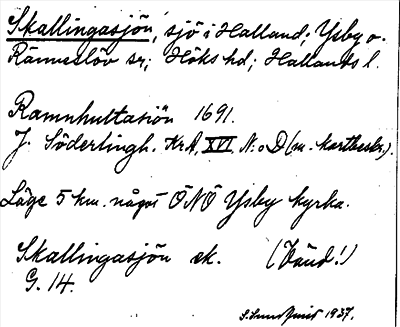 Skallingasjön, sjö i Halland; Ysby o.
Ränneslöv sr; Höks hd; Hallands l.
Ramnhultasiön 1691.
J. Söderlingh. KrA, XVI, N:o D (m. kartbeskr.).
Läge 5 km. något ÖNÖ Ysby kyrka.
Skallingasjön ek. (Vänd!)
G. 14.
1937.